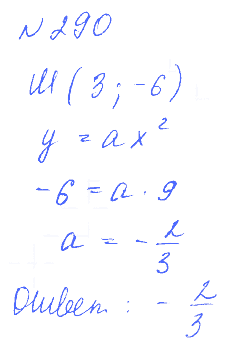 № 290
М (3; -6)
y = ax²
-6 = a · 9
a = -2/3
Ответ: -2/3